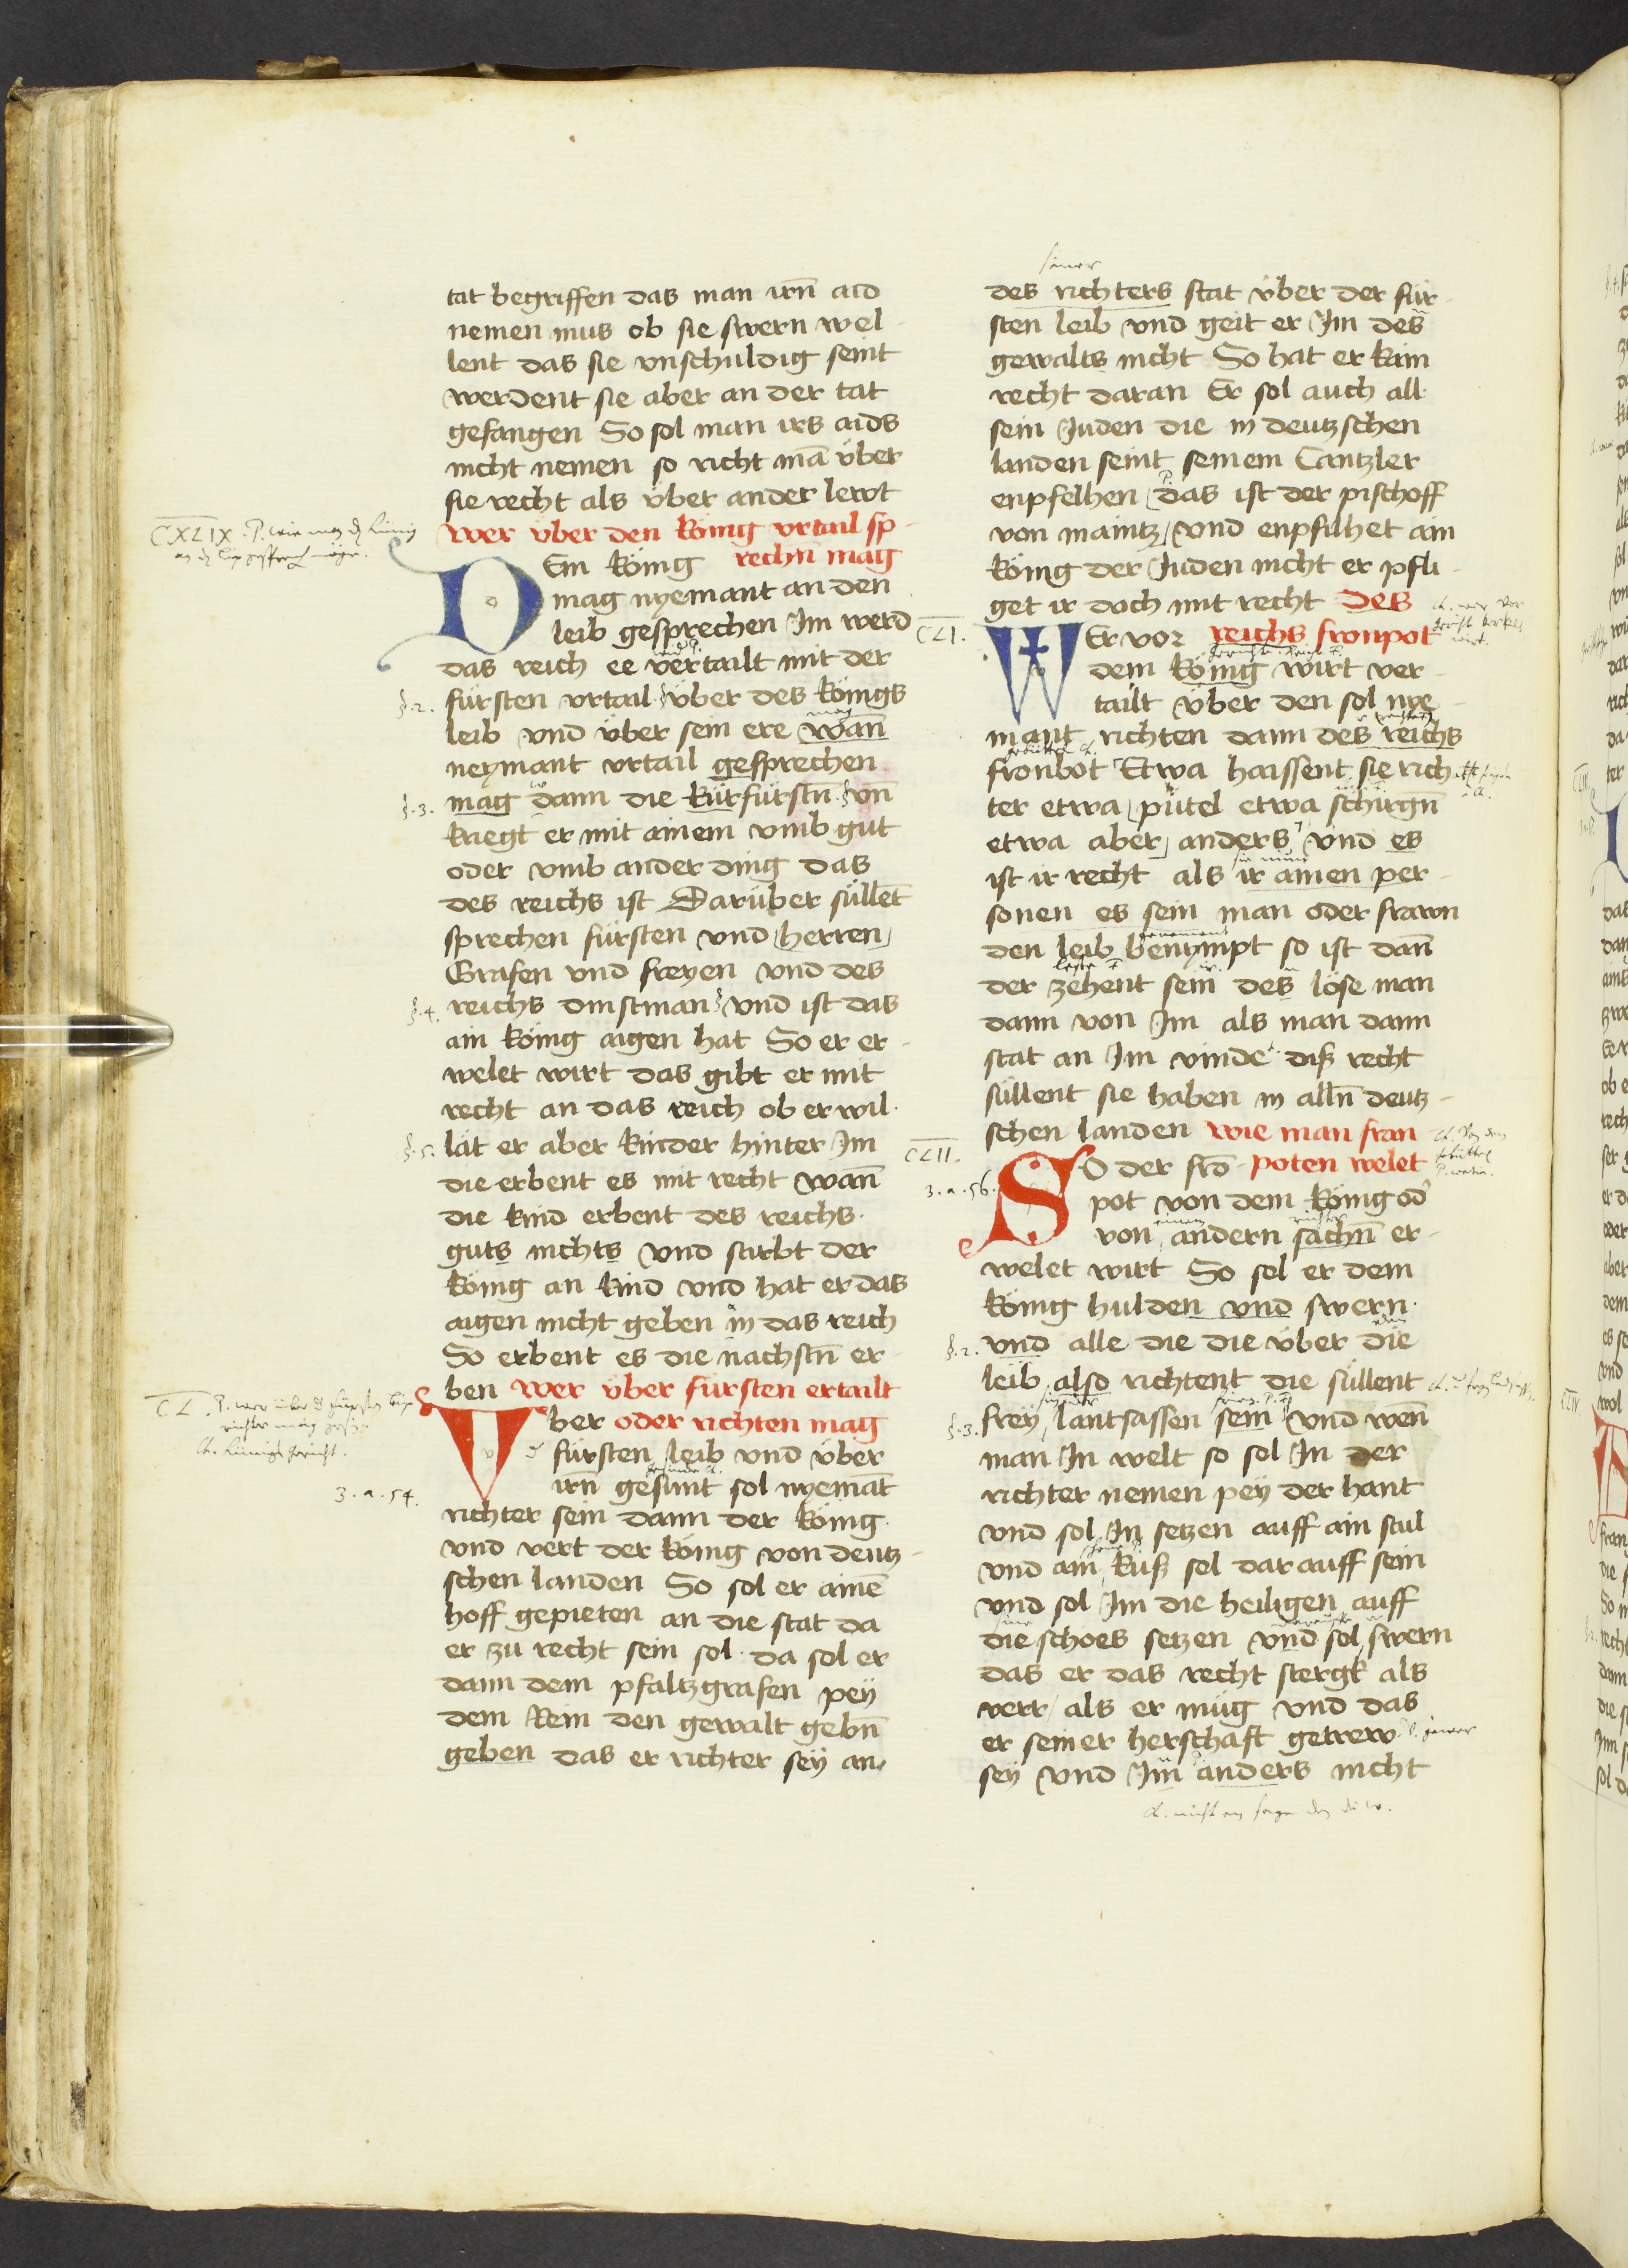 tat begriffen das man irn̄ aid
nemen mus ob sie swern wel
lent das sie vnschuldig seint
werdent sie aber an der tat
gefangen So sol man irs aids
nicht nemen so richt mā über
sie recht als über ander lewt
wer über den König vrtail sp
rechn̄ mag
DEm König
mag nyemant an den
leib gesprechen Im werd
das reich ee vertailt mit der
§.2. fürsten vrtail über des Königs
leib vnd über sein ere wan̄
neymant vrtail gesprechen
§.3. mag dann die Kürfürstn̄ vn̄
kriegt er mit ainem vmb gut
oder vmb ander ding das
des reichs ist Darüber süllet̄
sprechen fürsten vnd herren
Grafen vnd freyen vnd des
§.4. reichs dinstman vnd ist das
ain König aigen hat So er er
welet wirt das gibt er mit
recht an das reich ob er wil
§.5. lät er aber kinder hinter Im
die erbent es mit recht wan̄
die kind erbent des reichs
guts nichts vnd stirbt der
König an kind vnd hat er das
aigen nicht geben in das reich
So erbent es die nachstn̄ er
ben wer über fürsten ertailt
Vber oder richten mag
fürsten leib vnd über
irn̄ gesunt sol nyemāt
3.a.54.
richter sein dann der König
vnd vert der König von deutz
schen landen So sol er ainē
hoff gepieten an die stat da
er zu recht sein sol da sol er
dann dem pfaltzgrafen pey
dem Rein den gewalt gebn̄
geben das er richter sey an
des richters stat über der für
sten leib vnd geit er Im des
gewalts nicht So hat er kain
recht daran Er sol auch all
sein Juden die in deutzschen
landen seint seinem Cantzler
enpfelhen das ist der pischoff
von maintz vnd enpfilhet ain
König der Juden nicht er pfli
get ir doch mit recht Des
CLI. WEr vor reichs fronpot
dem König wirt ver
tailt über den sol nye
mant richten dann des reichs
fronbot Etwa haissent sie rich
ter etwa pütel etwa schirgn̄
etwa aber anders vnd es
ist ir recht als ir ainen per
sonen es sein man oder frawn
den leib benympt so ist dan̄
der zehent sein des löse man
dann von Im als man dann
stat an Im vinde diß recht
süllent sie haben in alln̄ deutz
schen landen wie man fran
CLII. SO der frō poten welet
3.a.56. pot von dem König od
von andern sachn̄ er
welet wirt So sol er dem
König hulden vnd swern
§.2. vnd alle die die über die
leib also richtent die süllent
§.3. frey lantsassen sein vnd wen̄
man In welt so sol In der
richter nemen pey der hant
vnd sol In setzen auff ain stul
vnd ain Kuß sol darauff sein
vnd sol Im die heiligen auff
die schoes setzen vnd sol swern
das er das recht stergk als
verr als er müg vnd das
er seiner herschaft getrew
sey vnd Im anders nicht